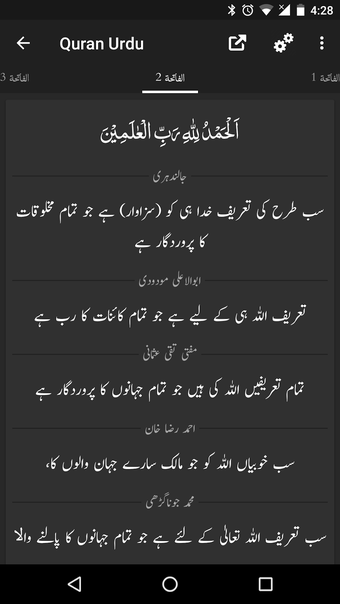 4:28
Quran Urdu
الفاتحة 3
الفاتحة 2
الفاتحة 1
اَلْحَمْدُ لِلّٰهِ رَبِّ الْعٰلَمِيْنَ
جالندہری
سب طرح کی تعریف خدا ہی کو (سزاوار) ہے جو تمام مخلوقات
کا پروردگار ہے
ابوالاعلی مودودی
تعریف اللہ ہی کے لیے ہے جو تمام کائنات کا رب ہے
مفتی تقی عثمانی
تمام تعریفیں اللہ کی ہیں جو تمام جہانوں کا پروردگار ہے
احمد رضا خان
سب خوبیاں اللہ کو جو مالک سارے جہان والوں کا،
محمد جوناگڑھی
سب تعریف اللہ تعالیٰ کے لئے ہے جو تمام جہانوں کا پالنے والا